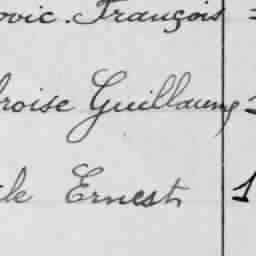 ovic. François
roise Guillaume
le Ernest 1